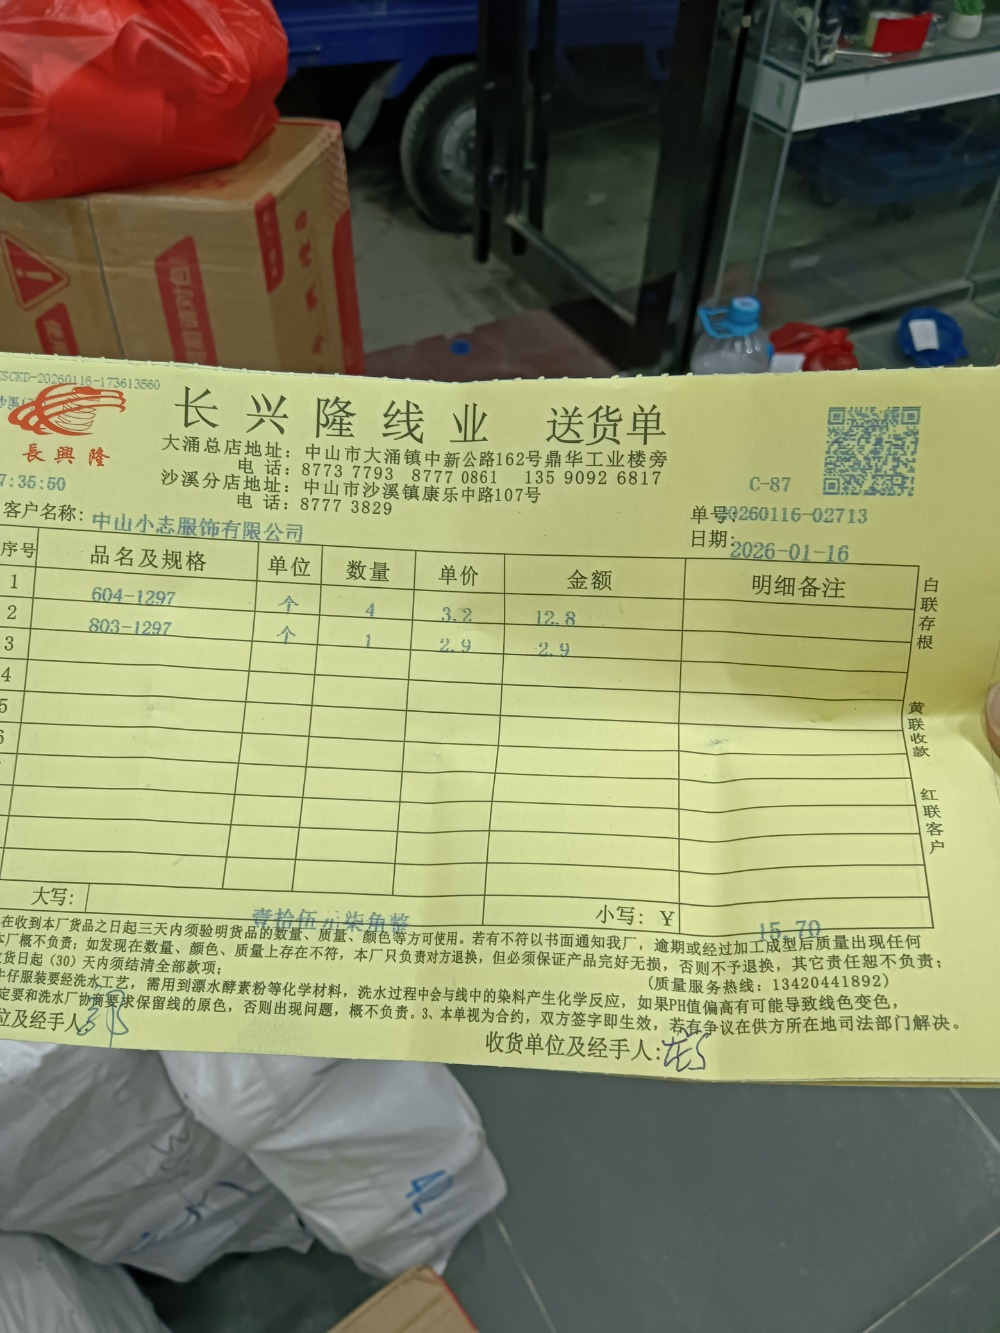 SCKD-20260116-173613560
長興隆
长兴隆线业 送货单
大涌总店地址：中山市大涌镇中新公路162号鼎华工业楼旁
电 话：8773 7793 8777 0861 135 9092 6817
沙溪分店地址：中山市沙溪镇康乐中路107号
电 话：8777 3829
C-87
7:35:50
客户名称：中山小志服饰有限公司
单号：20260116-02713
日期：2026-01-16
序号 品名及规格 单位 数量 单价 金额 明细备注
1 604-1297 个 4 3.2 12.8
2 803-1297 个 1 2.9 2.9
3
4
5
6
白联存根
黄联收款
红联客户
大写： 壹拾伍元柒角整 小写：￥ 15.70
在收到本厂货品之日起三天内须验明货品的数量、质量、颜色等方可使用。若有不符以书面通知我厂，逾期或经过加工成型后质量出现任何
本厂概不负责；如发现在数量、颜色、质量上存在不符，本厂只负责对方退换，但必须保证产品完好无损，否则不予退换，其它责任恕不负责；
货日起（30）天内须结清全部款项；
(质量服务热线：13420441892)
牛仔服装要经洗水工艺，需用到漂水酵素粉等化学材料，洗水过程中会与线中的染料产生化学反应，如果PH值偏高有可能导致线色变色，
定要和洗水厂协商要求保留线的原色，否则出现问题，概不负责。3、本单视为合约，双方签字即生效，若有争议在供方所在地司法部门解决。
位及经手人
收货单位及经手人：